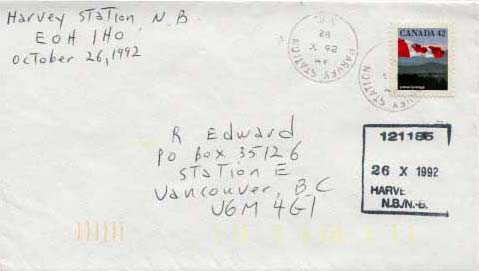 Harvey Station, N.B.
E0H 1H0
October 26, 1992
28
X 92
HARVEY STATION
CANADA 42
HARVEY STATION
R Edward
PO Box 35126
Station E
Vancouver, B.C
V6M 4G1
121185
26 X 1992
HARVE
N.B./N.-B.